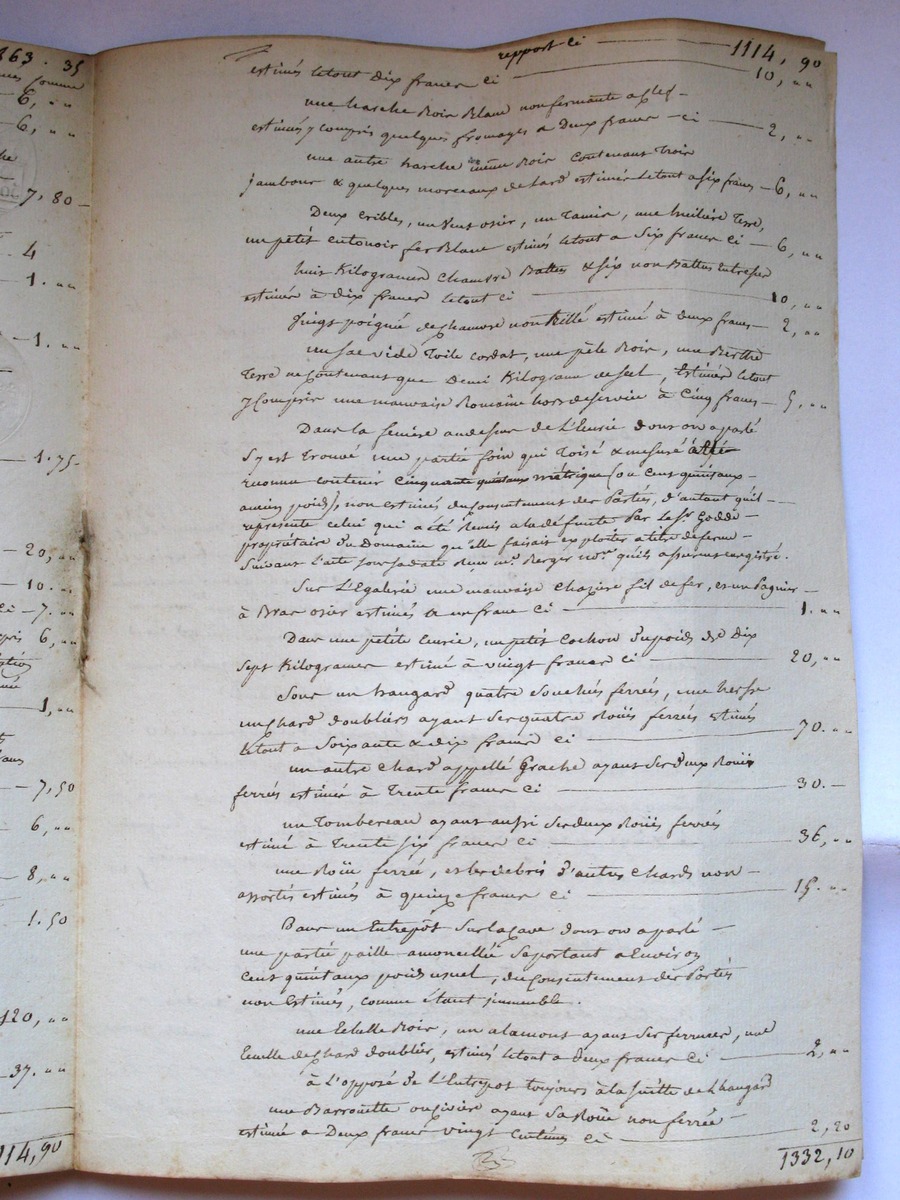 863. 35
6, ""
6, ""
7, 80
4
1. ""
1. ""
1.75
20, ""
10. ""
7. ""
6, ""
1, ""
7,50
6, ""
8, ""
1.50
120, ""
37. ""
1114,90
report ci 1114, 90
estimés letout dix francs ci 10, ""
une harche Bois Blanc non fermante a clef
estimés y compris quelques fromages a Deux francs ci 2, ""
une autre harche même Bois contenant Trois
jambons & quelques morceaux de lard estimés letout a six francs 6, ""
Deux cribles, un Vent osier, un Tamis, une huilière Terre,
un petit entonoir fer Blanc estimés letout a Six francs ci 6, ""
huit Kilogrames Chamvre Battus & six non Battus
estimés à dix francs letout ci 10, ""
Vingt poigné de chamvre non estimé à deux francs 2, ""
un sac vide Toile cordat, une pèle Bois, une Berthe
Terre ne contenant que Demi Kilograme de sel, Estimés letout
y Compris une mauvaise Romaine hors de service à Cinq francs 5, ""
Dans la fenière au dessus de L'Ecurie dont on a parlé
S'y est Trouvé une partie foin qui Toisé & mesuré a été
reconnu contenir Cinquante quintaux métriques (ou Cent quintaux
ancien poids), non estimés du consentement des Partis, d'autant qu'il
représente celui qui a été Remis a la défunte Par le Sr Godde
propriétaire du Domaine qu'elle faisait exploiter a titre de ferme
Suivant l'acte Reçu me. Berger nore qu'ils assurent enregistré.
Sur L'Egalerie une mauvaise Chazire fil de fer, & un Pagnier
à Bras osier estimés a un franc ci 1. ""
Dans une petite Ecurie, un petit Cochon du poids de dix
sept Kilogrames estimé à vingt francs ci 20, ""
Sous un hangard quatre ferrées, une herse
un chard doubliers ayant Ses quatre Roües ferrées estimés
letout a Soixante & dix francs ci 70. ""
un autre Chard appellé Grache ayant Ses deux Roües
ferrées estimé à Trente francs ci 30.
un Tombereau ayant aussi Ses deux Roües ferrées
estimé à Trente six francs ci 36, ""
une Roüe ferrée, & les débris d'autres chards non
assortés estimés à quinze francs ci 15. ""
Dans un Entrepôt Sur la cave dont on a parlé
une partie paille amoncellé Se portant a Environ
Cent quintaux poids usuel, du Consentement des Partis
non Estimés, comme étant immeuble.
une Echelle Bois, un alamont ayant Ses ferrures, une
Echelle de chard doublier, estimés letout a deux francs ci 2, ""
à L'opposé de L'Entrepot toujours à la suitte de l'hangard
une Barrouette ou Civière ayant Sa Roüe non ferrée
estimée a Deux francs vingt Centimes ci 2,20
1332,10